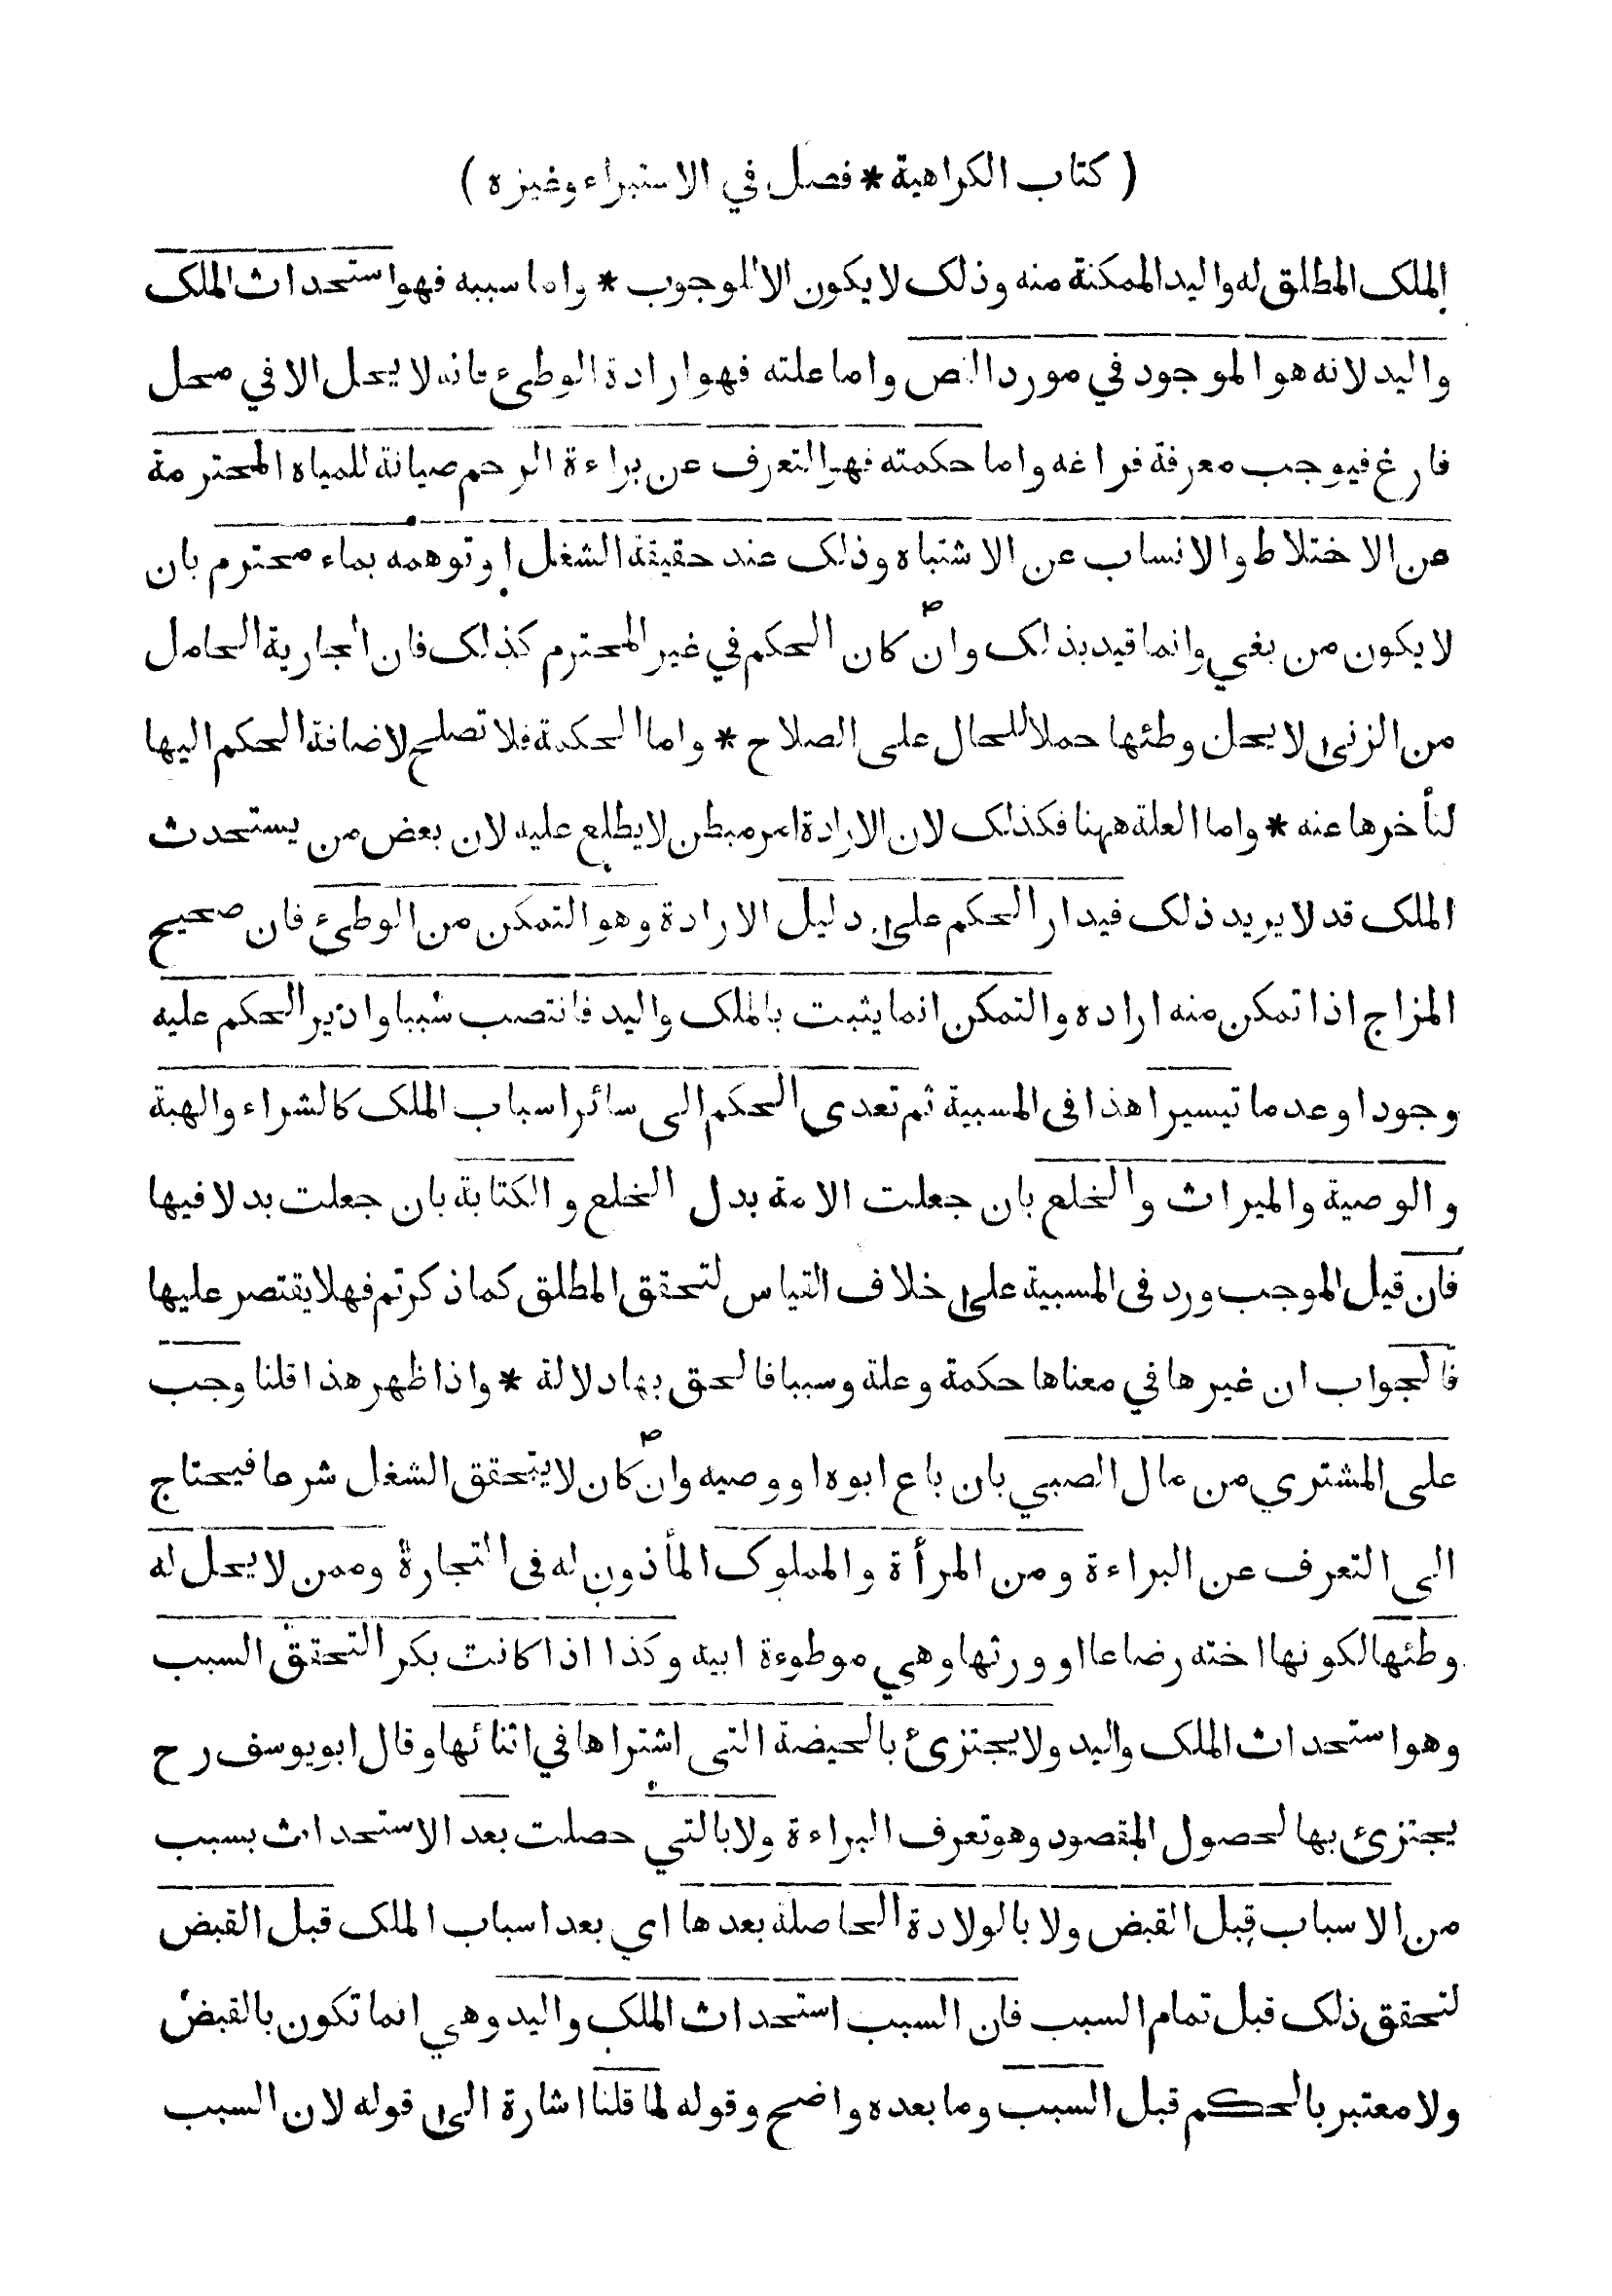 ( كتاب الكراهية * فصل في الاستبراء وغيره )
الملك المطلق له واليد الممكنة منه وذلك لا يكون الا للوجوب * واما سببه فهو استحداث الملك
واليد لانه هو الموجود في مورد النص واما علته فهو ارادة الوطئ فانه لا يحل الا في محل
فارغ فيوجب معرفة فراغه واما حكمته فهو التعرف عن براءة الرحم صيانة للمياه المحترمة
عن الاختلاط والانساب عن الاشتباه وذلك عند حقيقة الشغل او توهمه بماء محترم بان
لا يكون من بغي وانما قيد بذلك وان كان الحكم في غير المحترم كذلك فان الجارية الحامل
من الزنى لا يحل وطئها حملا للحال على الصلاح * واما الحكمة فلا تصلح لاضافة الحكم اليها
لتأخرها عنه * واما العلة ههنا فكذلك لان الارادة امر مبطن لا يطلع عليه لان بعض من يستحدث
الملك قد لا يريد ذلك فيدار الحكم على دليل الارادة وهو التمكن من الوطئ فان صحيح
المزاج اذا تمكن منه اراده والتمكن انما يثبت بالملك واليد فانتصب سببا وادير الحكم عليه
وجودا وعدما تيسيرا هذا فى المسبية ثم تعدى الحكم الى سائر اسباب الملك كالشراء والهبة
والوصية والميراث والخلع بان جعلت الامة بدل الخلع والكتابة بان جعلت بدلا فيها
فان قيل الموجب ورد فى المسبية على خلاف القياس لتحقق المطلق كما ذكرتم فهلا يقتصر عليها
فالجواب ان غيرها في معناها حكمة وعلة وسببا فالحق بها دلالة * واذا ظهر هذا قلنا وجب
على المشتري من مال الصبي بان باع ابوه او وصيه وان كان لا يتحقق الشغل شرعا فيحتاج
الى التعرف عن البراءة ومن المرأة والمملوك المأذون له فى التجارة وممن لا يحل له
وطئها لكونها اخته رضاعا او ورثها وهي موطوءة ابيه وكذا اذا كانت بكرا لتحقق السبب
وهو استحداث الملك واليد ولا يجتزئ بالحيضة التى اشتراها في اثنائها وقال ابو يوسف رح
يجتزئ بها لحصول المقصود وهو تعرف البراءة ولا بالتي حصلت بعد الاستحداث بسبب
من الاسباب قبل القبض ولا بالولادة الحاصلة بعدها اي بعد اسباب الملك قبل القبض
لتحقق ذلك قبل تمام السبب فان السبب استحداث الملك واليد وهي انما تكون بالقبض
ولا معتبر بالحكم قبل السبب وما بعده واضح وقوله لما قلنا اشارة الى قوله لان السبب